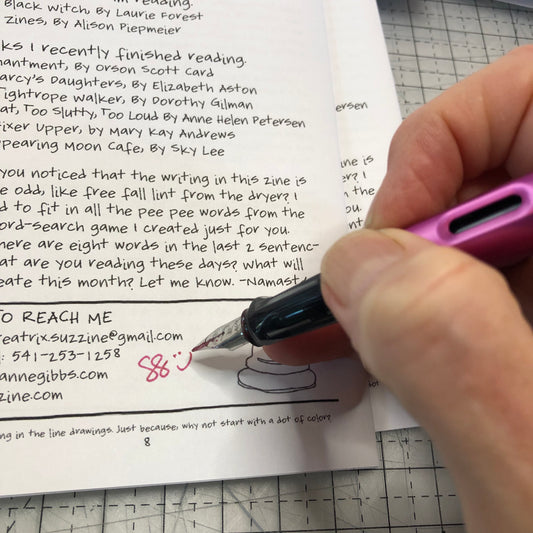 Black Witch, By Laurie Forest
Zines, By Alison Piepmeier
ks I recently finished reading.
hantment, By Orson Scott Card
arcy's Daughters, By Elizabeth Aston
ightrope Walker, By Dorothy Gilman
at, Too Slutty, Too Loud By Anne Helen Petersen
ixer Upper, by Mary Kay Andrews
ppearing Moon Cafe, By Sky Lee
you noticed that the writing in this zine is
e odd, like free fall lint from the dryer? I
d to fit in all the pee pee words from the
ord-search game I created just for you.
here are eight words in the last 2 sentenc-
at are you reading these days? What will
eate this month? Let me know. -Namast
TO REACH ME
reatrix.suzzine@gmail.com
: 541-253-1258
annegibbs.com
zine.com
SG
ng in the line drawings. Just because, why not start with a dot of color?
8
ersen
ine is
er? I
the
ou.